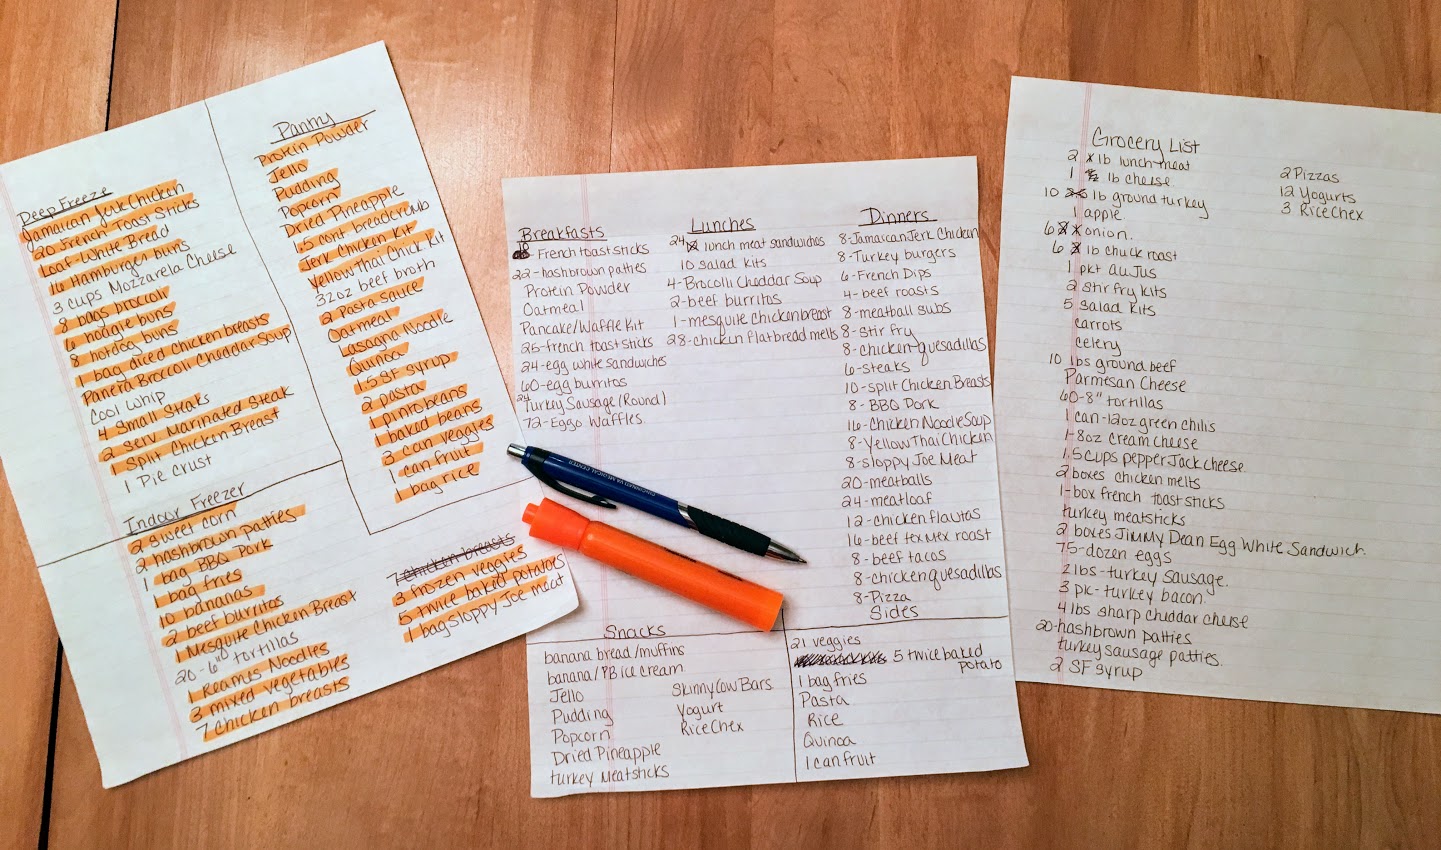 Deep Freeze
Jamaican Jerk Chicken
20 French Toast Sticks
Loaf-White Bread
16 Hamburger buns
3 cups Mozzarela Cheese
8 bags brocoli
6 hoagie buns
8 hotdog buns
1 bag diced chicken breasts
Panera Brocoli Cheddar Soup
Cool Whip
4 Small Steaks
2 Serv. Marinated Steak
1 Split Chicken Breast
1 Pie Crust
Pantry
Protein Powder
Jello
Pudding
Popcorn
Dried Pineapple
1.5 cont breadcrumb
Jerk Chicken Kit
Yellow Thai Chick Kit
32oz beef broth
2 Pasta Sauce
Oatmeal
Lasagna Noodle
Quinoa
1.5 SF Syrup
2 pasta
1 pinto beans
1 baked beans
3 can veggies
1 can fruit
1 bag rice
Indoor Freezer
2 sweet corn
2 hashbrown patties
1 bag BBQ Pork
1 bag fries
10 bananas
2 beef burritos
1 Mesquite Chicken Breast
20-6" tortillas
1 Reames Noodles
3 mixed vegetables
7 Chicken breasts
7 chicken breasts
3 frozen veggies
5 twice baked potatoes
1 bag Sloppy Joe meat
Breakfasts
- French toast sticks
22-hashbrown patties
Protein Powder
Oatmeal
Pancake/Waffle Kit
25-french toast sticks
24-egg white sandwiches
60-egg burritos
24 Turkey Sausage (Round)
72-Eggo Waffles
Lunches
24 lunch meat sandwiches
10 salad kits
4-Brocolli Cheddar Soup
2-beef burritos
1-mesquite chicken breast
28-chicken flatbread melts
Dinners
8-Jamaican Jerk Chicken
8-Turkey burgers
6-French Dips
4-beef roasts
8-meatball subs
8-stir fry
8-chicken quesadillas
6-steaks
10-split Chicken Breasts
8-BBQ Pork
16-Chicken Noodle Soup
8-Yellow Thai Chicken
8-Sloppy Joe Meat
20-meatballs
24-meatloaf
12-chicken flautas
16-beef tex mex roast
8-beef tacos
8-chicken quesadillas
8-Pizza
Snacks
banana bread/muffins
banana/PB ice cream
Jello
Pudding
Popcorn
Dried Pineapple
turkey Meatsticks
Skinny Cow Bars
Yogurt
Rice Chex
Sides
21 veggies
5 twice baked
potato
1 bag fries
Pasta
Rice
Quinoa
1 can fruit
Grocery List
2 lb lunch meat
1 lb cheese
10 lb ground turkey
1 apple
6 onion.
6 lb chuck roast
1 pkt au Jus
2 stir fry kits
5 salad Kits
carrots
celery
10 lbs ground beef
Parmesan Cheese
60-8" tortillas
1 can-12oz green chilis
1-8oz cream cheese
1.5 cups pepper Jack cheese
2 boxes chicken melts
1-box french toast sticks
turkey meatsticks
2 boxes Jimmy Dean Egg White Sandwich.
7.5-dozen eggs
2 lbs-turkey sausage.
3 pk-turkey bacon.
4 lbs sharp chuddar cheese
20-hashbrown patties
turkey sausage patties.
2 SF syrup
2 Pizzas
12 Yogurts
3 Rice Chex